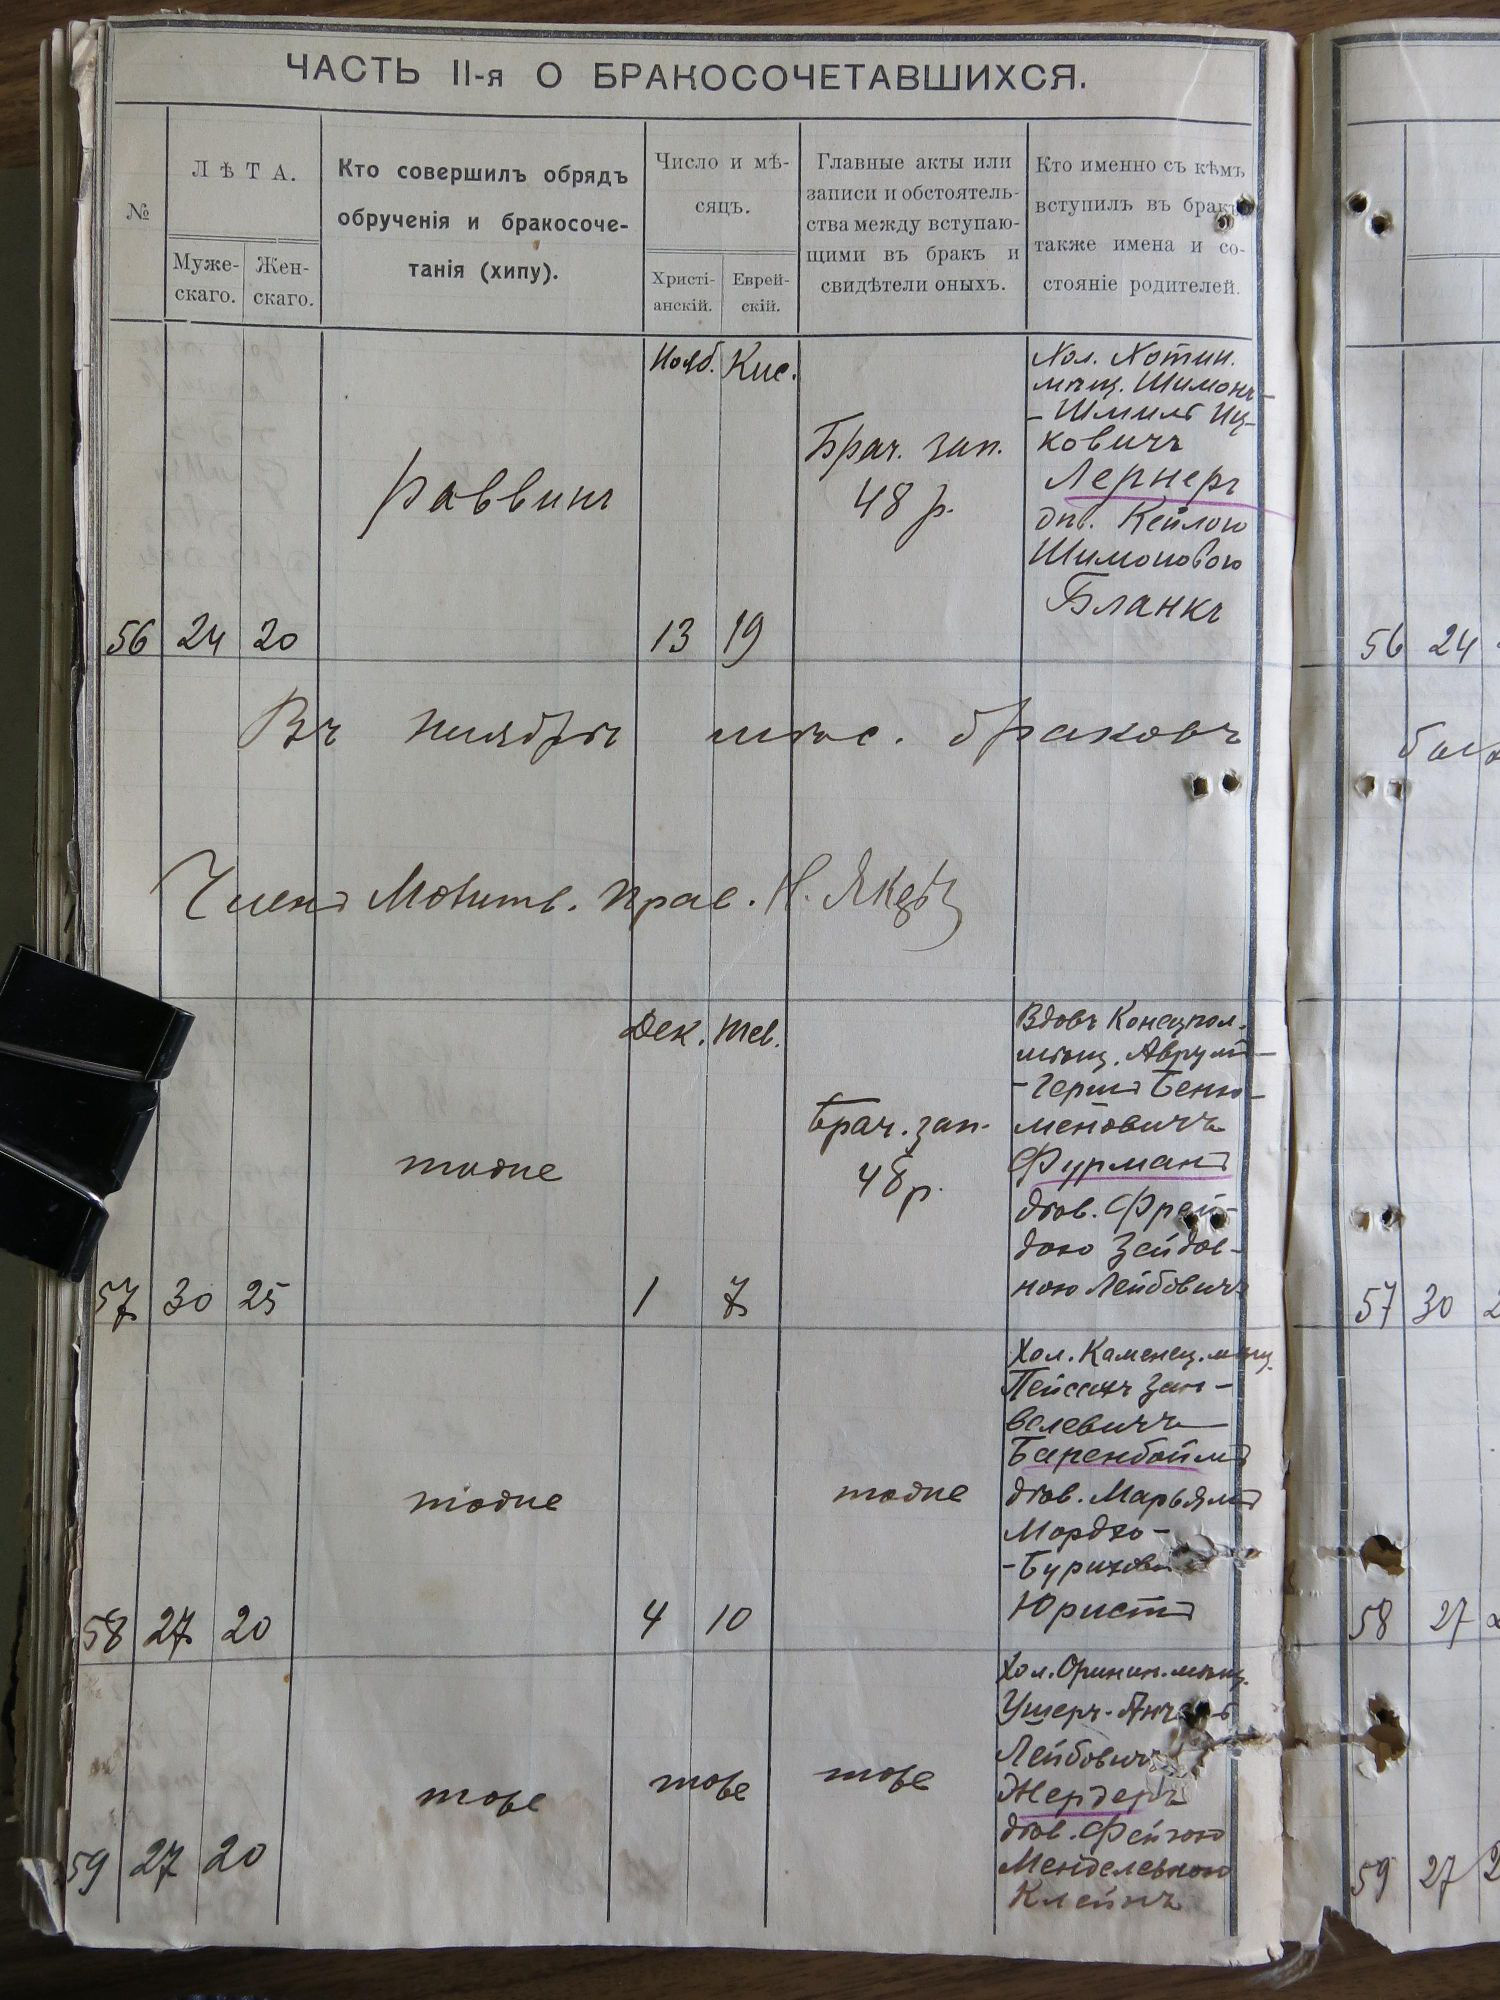 ЧАСТЬ II-я О БРАКОСОЧЕТАВШИХСЯ.
№
ЛѢТА.
Муже-
скаго.
Жен-
скаго.
Кто совершилъ обрядъ
обрученія и бракосоче-
танія (хипу).
Число и мѣ-
сяцъ.
Христі-
анскій.
Еврей-
скій.
Главные акты или
записи и обстоятель-
ства между вступаю-
щими въ бракъ и
свидѣтели оныхъ.
Кто именно съ кѣмъ
вступилъ въ бракъ
также имена и со-
стояніе родителей.
56
24
20
Раввинъ
Нояб.
13
Кис.
19
Брач. зап.
48 р.
Хол. Хотин.
мѣщ. Шимонъ-
-Шмиль Иц-
ковичъ
Лернеръ
дѣв. Кейлою
Шимоновою
Бланкъ
Въ ноябрѣ мѣс. браковъ
Членъ Молитв. Прав. Н.
57
30
25
тоже
Дек.
1
Тев.
7
Брач. зап.
48 р.
Вдовъ Конецпол.
мѣщ. Аврумъ-
-Гершъ Беню-
меновичъ
Фурманъ
дѣв. Фрей-
дою Зейдов-
ною Лейбовичъ
58
27
20
тоже
4
10
тоже
Хол. Каменец. мѣщ.
Пейсахъ Зан-
велевичъ
Баренбоймъ
дѣв. Марьямъ
Мордко-
Юристъ
59
27
20
тоже
тоже
тоже
Хол. Оринин. мѣщ.
Ушеръ-
Лейбовичъ
Жердеръ
дѣв. Фейгою
Менделевною
Клейнъ
56 24
57 30 2
58 27
59 27 2